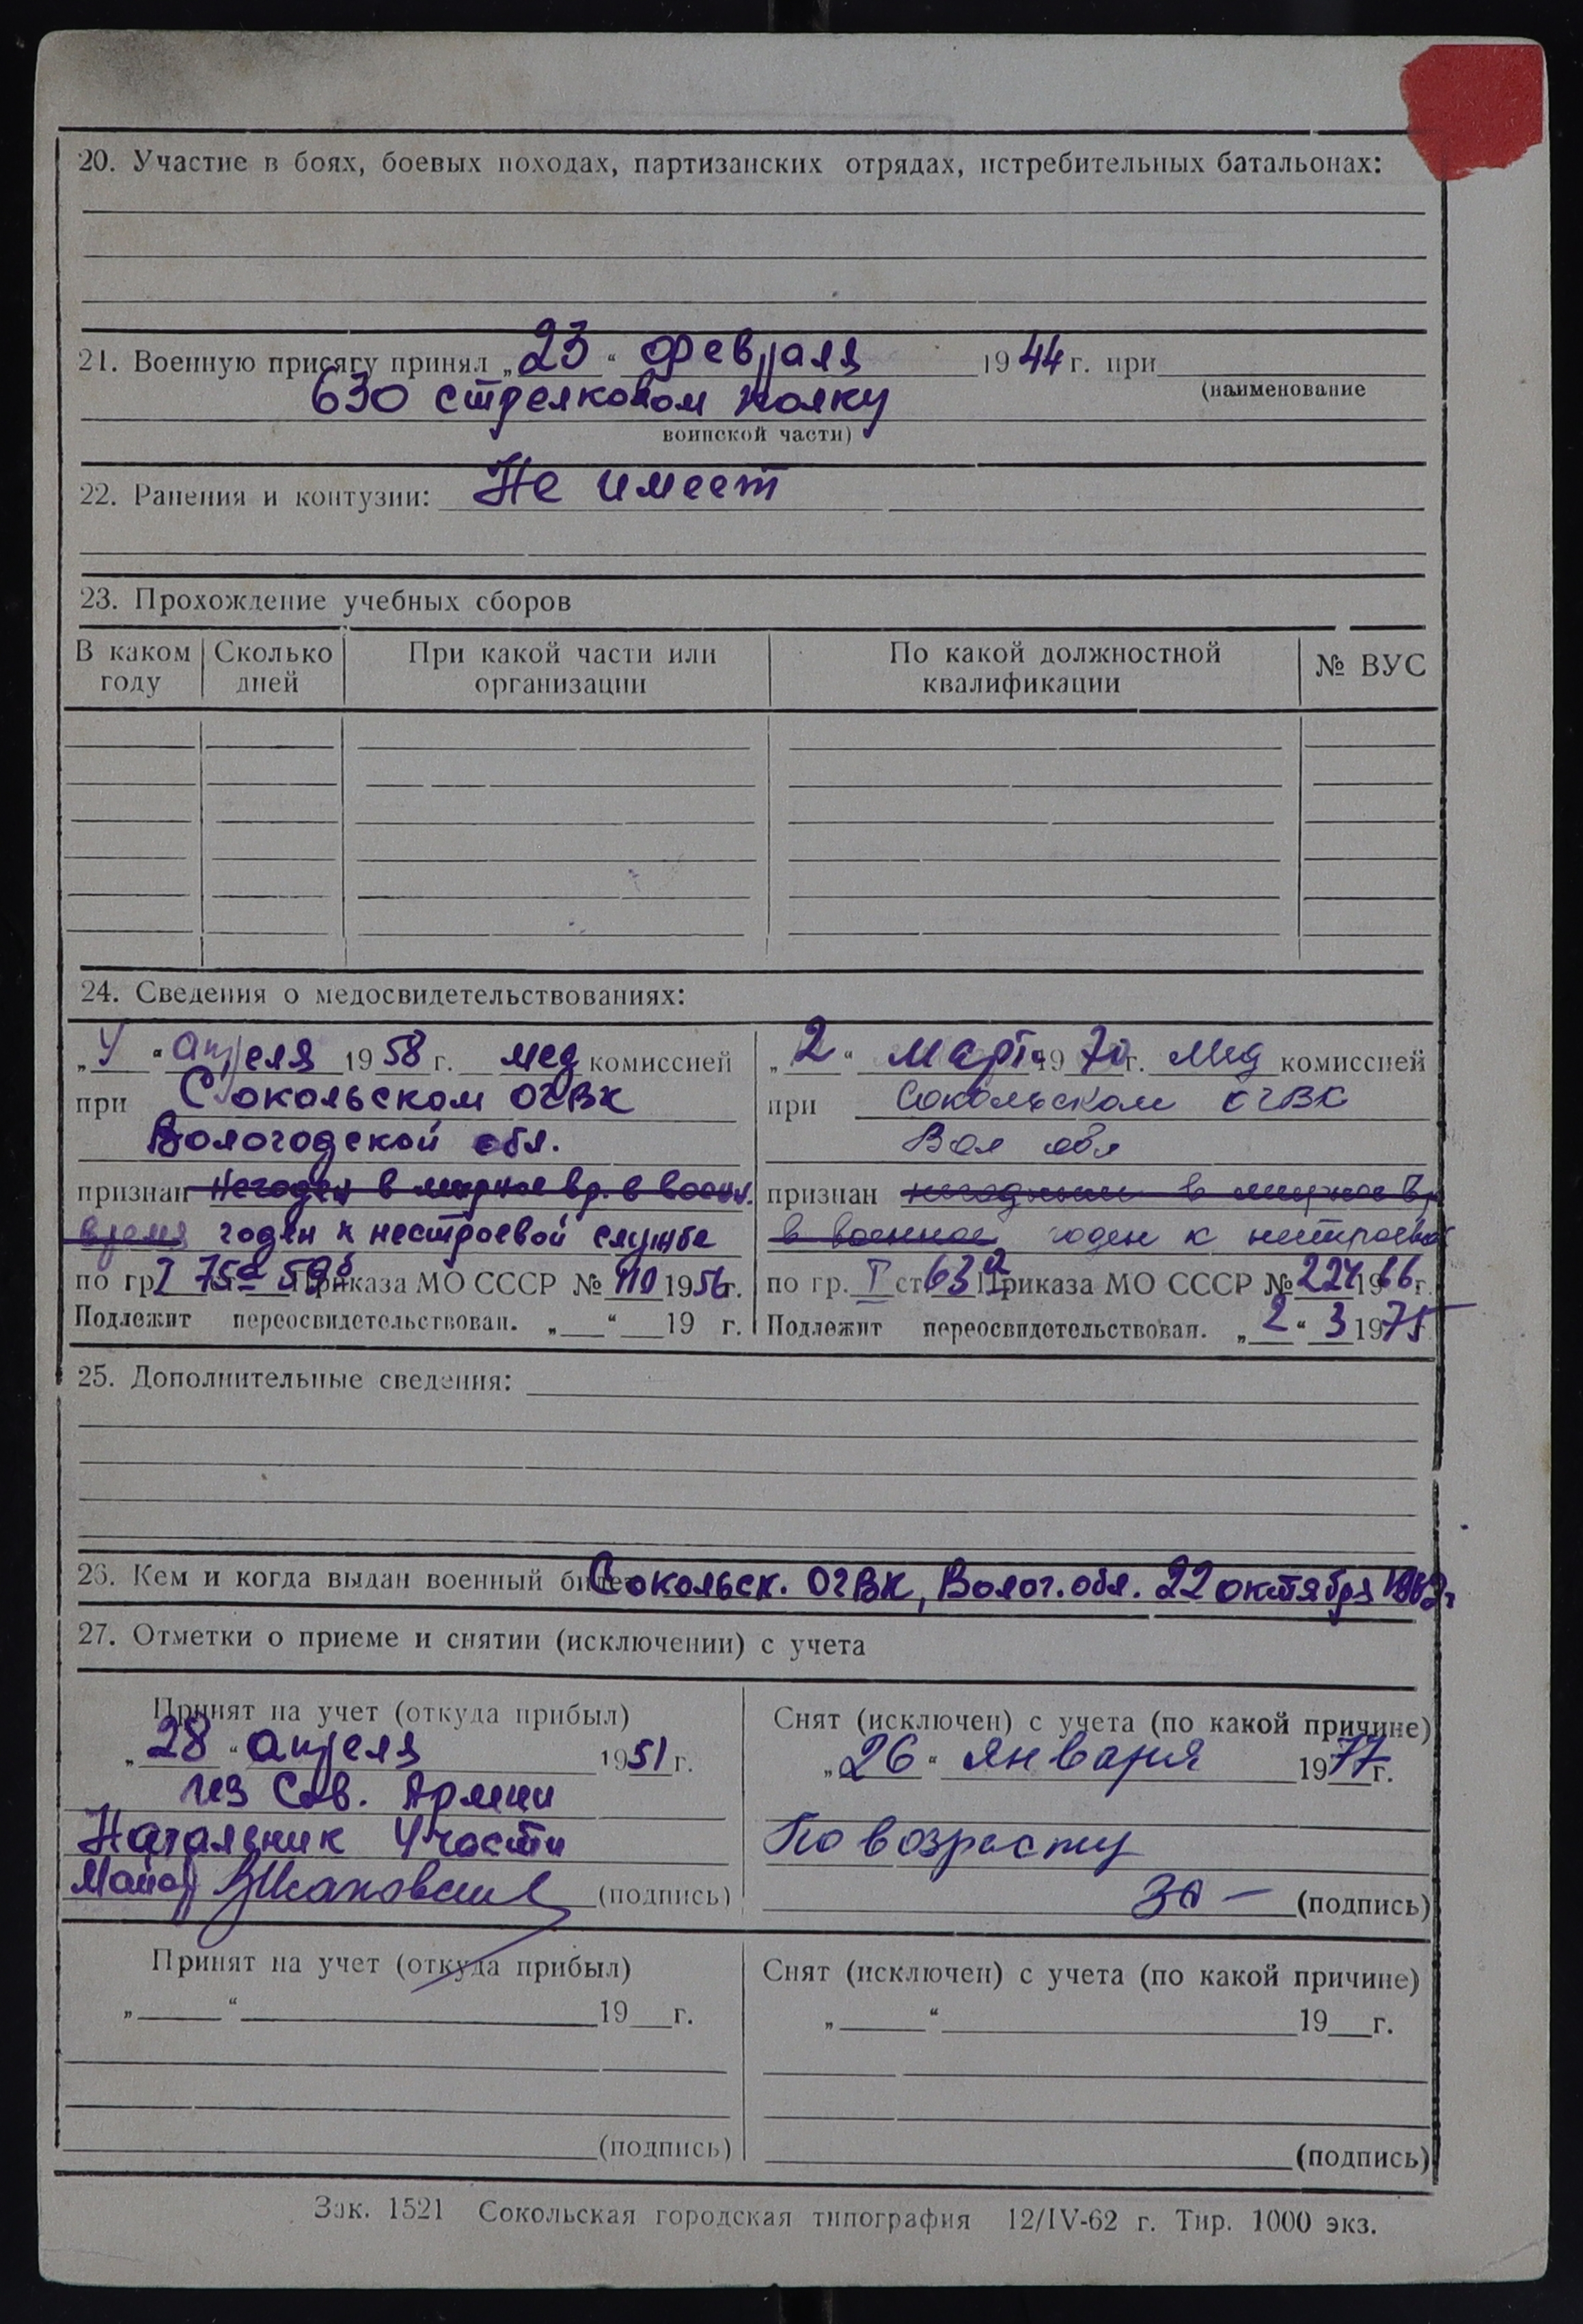 20. Участие в боях, боевых походах, партизанских отрядах, истребительных батальонах:
21. Военную присягу принял „23“ февраля 1944 г. при
(наименование
630 стрелковом полку
воинской части)
22. Ранения и контузии: Не имеет
23. Прохождение учебных сборов
В каком году Сколько дней При какой части или организации По какой должностной квалификации № ВУС
24. Сведения о медосвидетельствованиях:
„4“ апреля 1958 г. мед комиссией
при Сокольском ОГВК
Вологодской обл.
признан негоден в мирное вр. в воен.
время годен к нестроевой службе
по гр I 75а 59б Приказа МО СССР № 110 1956г.
Подлежит переосвидетельствован. „ “ 19 г.
„2“ март 1970г. Мед комиссией
при Сокольском ОГВК
Вол обл
признан негодным в мирное вр
в военное годен к нестроевой
по гр. I ст 63а Приказа МО СССР № 224 1966г.
Подлежит переосвидетельствован. „2“ 3 1975
25. Дополнительные сведения:
26. Кем и когда выдан военный билет Сокольск. ОГВК, Волог. обл. 22 октября 1962г
27. Отметки о приеме и снятии (исключении) с учета
Принят на учет (откуда прибыл)
„28“ апреля 1951 г.
из Сов. Армии
Начальник 4 части
Майор (подпись)
Снят (исключен) с учета (по какой причине)
„26“ января 1977г.
По возрасту
за — (подпись)
Принят на учет (откуда прибыл)
„ “ 19 г.
(подпись)
Снят (исключен) с учета (по какой причине)
„ “ 19 г.
(подпись)
Зак. 1521 Сокольская городская типография 12/IV-62 г. Тир. 1000 экз.